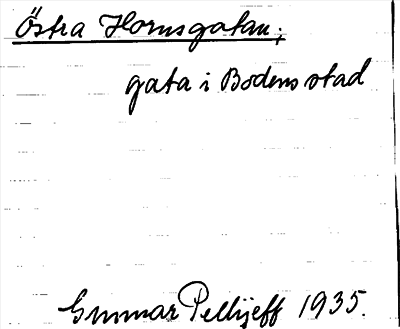 Östra Hornsgatan;
gata i Bodens stad
Gunnar Pellijeff 1935.